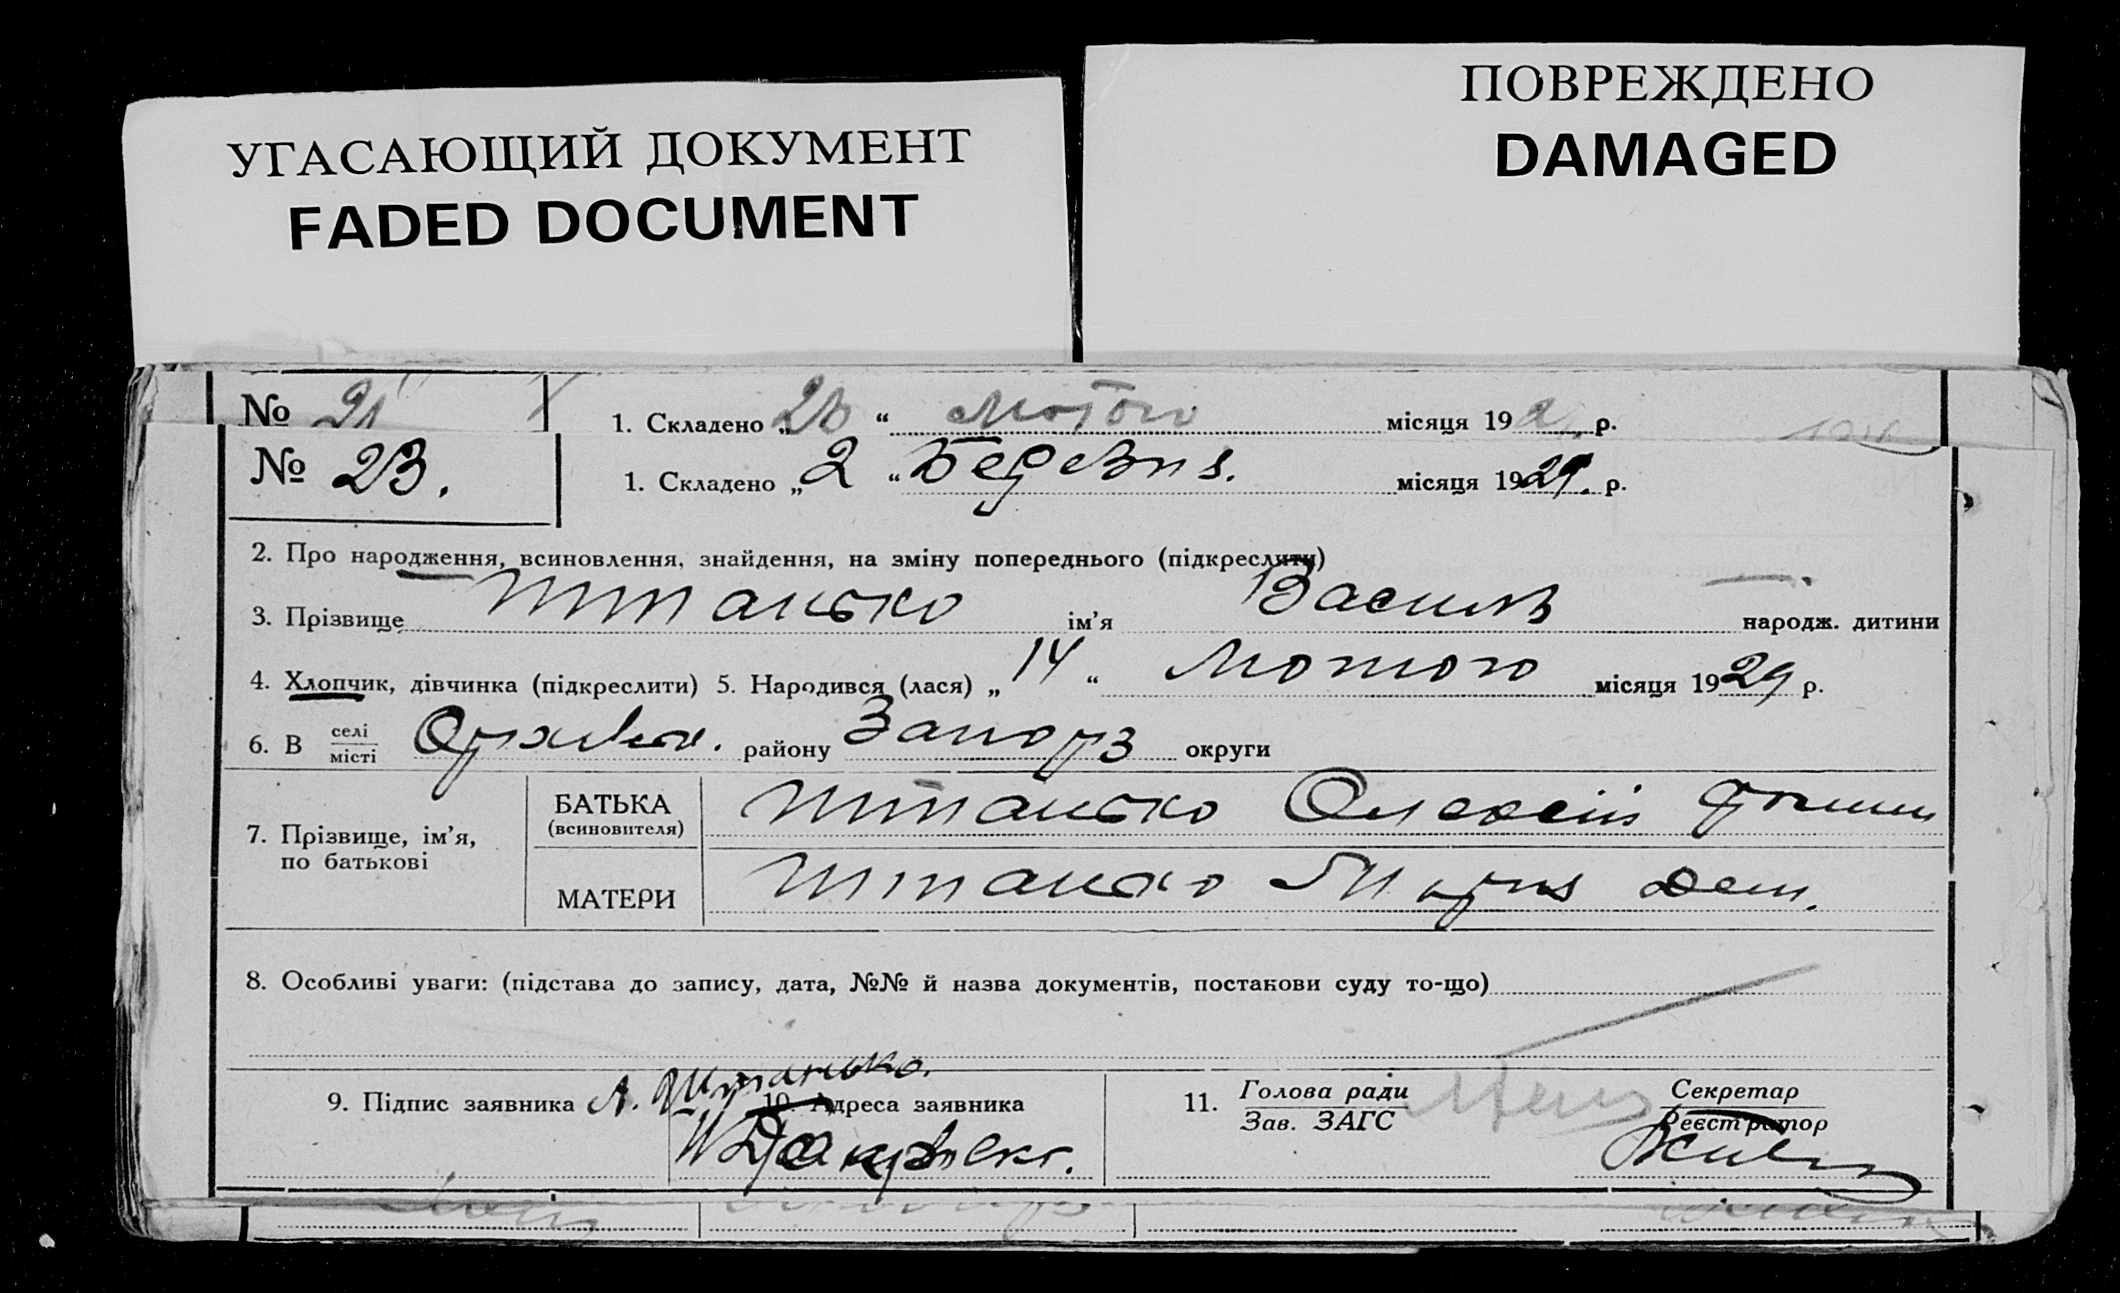 УГАСАЮЩИЙ ДОКУМЕНТ
FADED DOCUMENT
ПОВРЕЖДЕНО
DAMAGED
№ 21 1. Складено „ “ Лютого місяця 192 р.
№ 23. 1. Складено „2“ Березня. місяця 1929. р.
2. Про народження, всиновлення, знайдення, на зміну попереднього (підкреслити)
3. Прізвище Штанько ім’я Василь народж. дитини
4. Хлопчик, дівчинка (підкреслити) 5. Народився (лася) „14“ Лютого місяця 1929 р.
6. В селі місті району Запорз округи
7. Прізвище, ім’я, по батькові
БАТЬКА (всиновителя) Штанько Олексій
МАТЕРИ Штанько Марія Дем.
8. Особливі уваги: (підстава до запису, дата, №№ й назва документів, постанови суду то-що)
9. Підпис заявника А. Штанько. 10. Адреса заявника
11. Голова ради Зав. ЗАГС Секретар Реєстратор